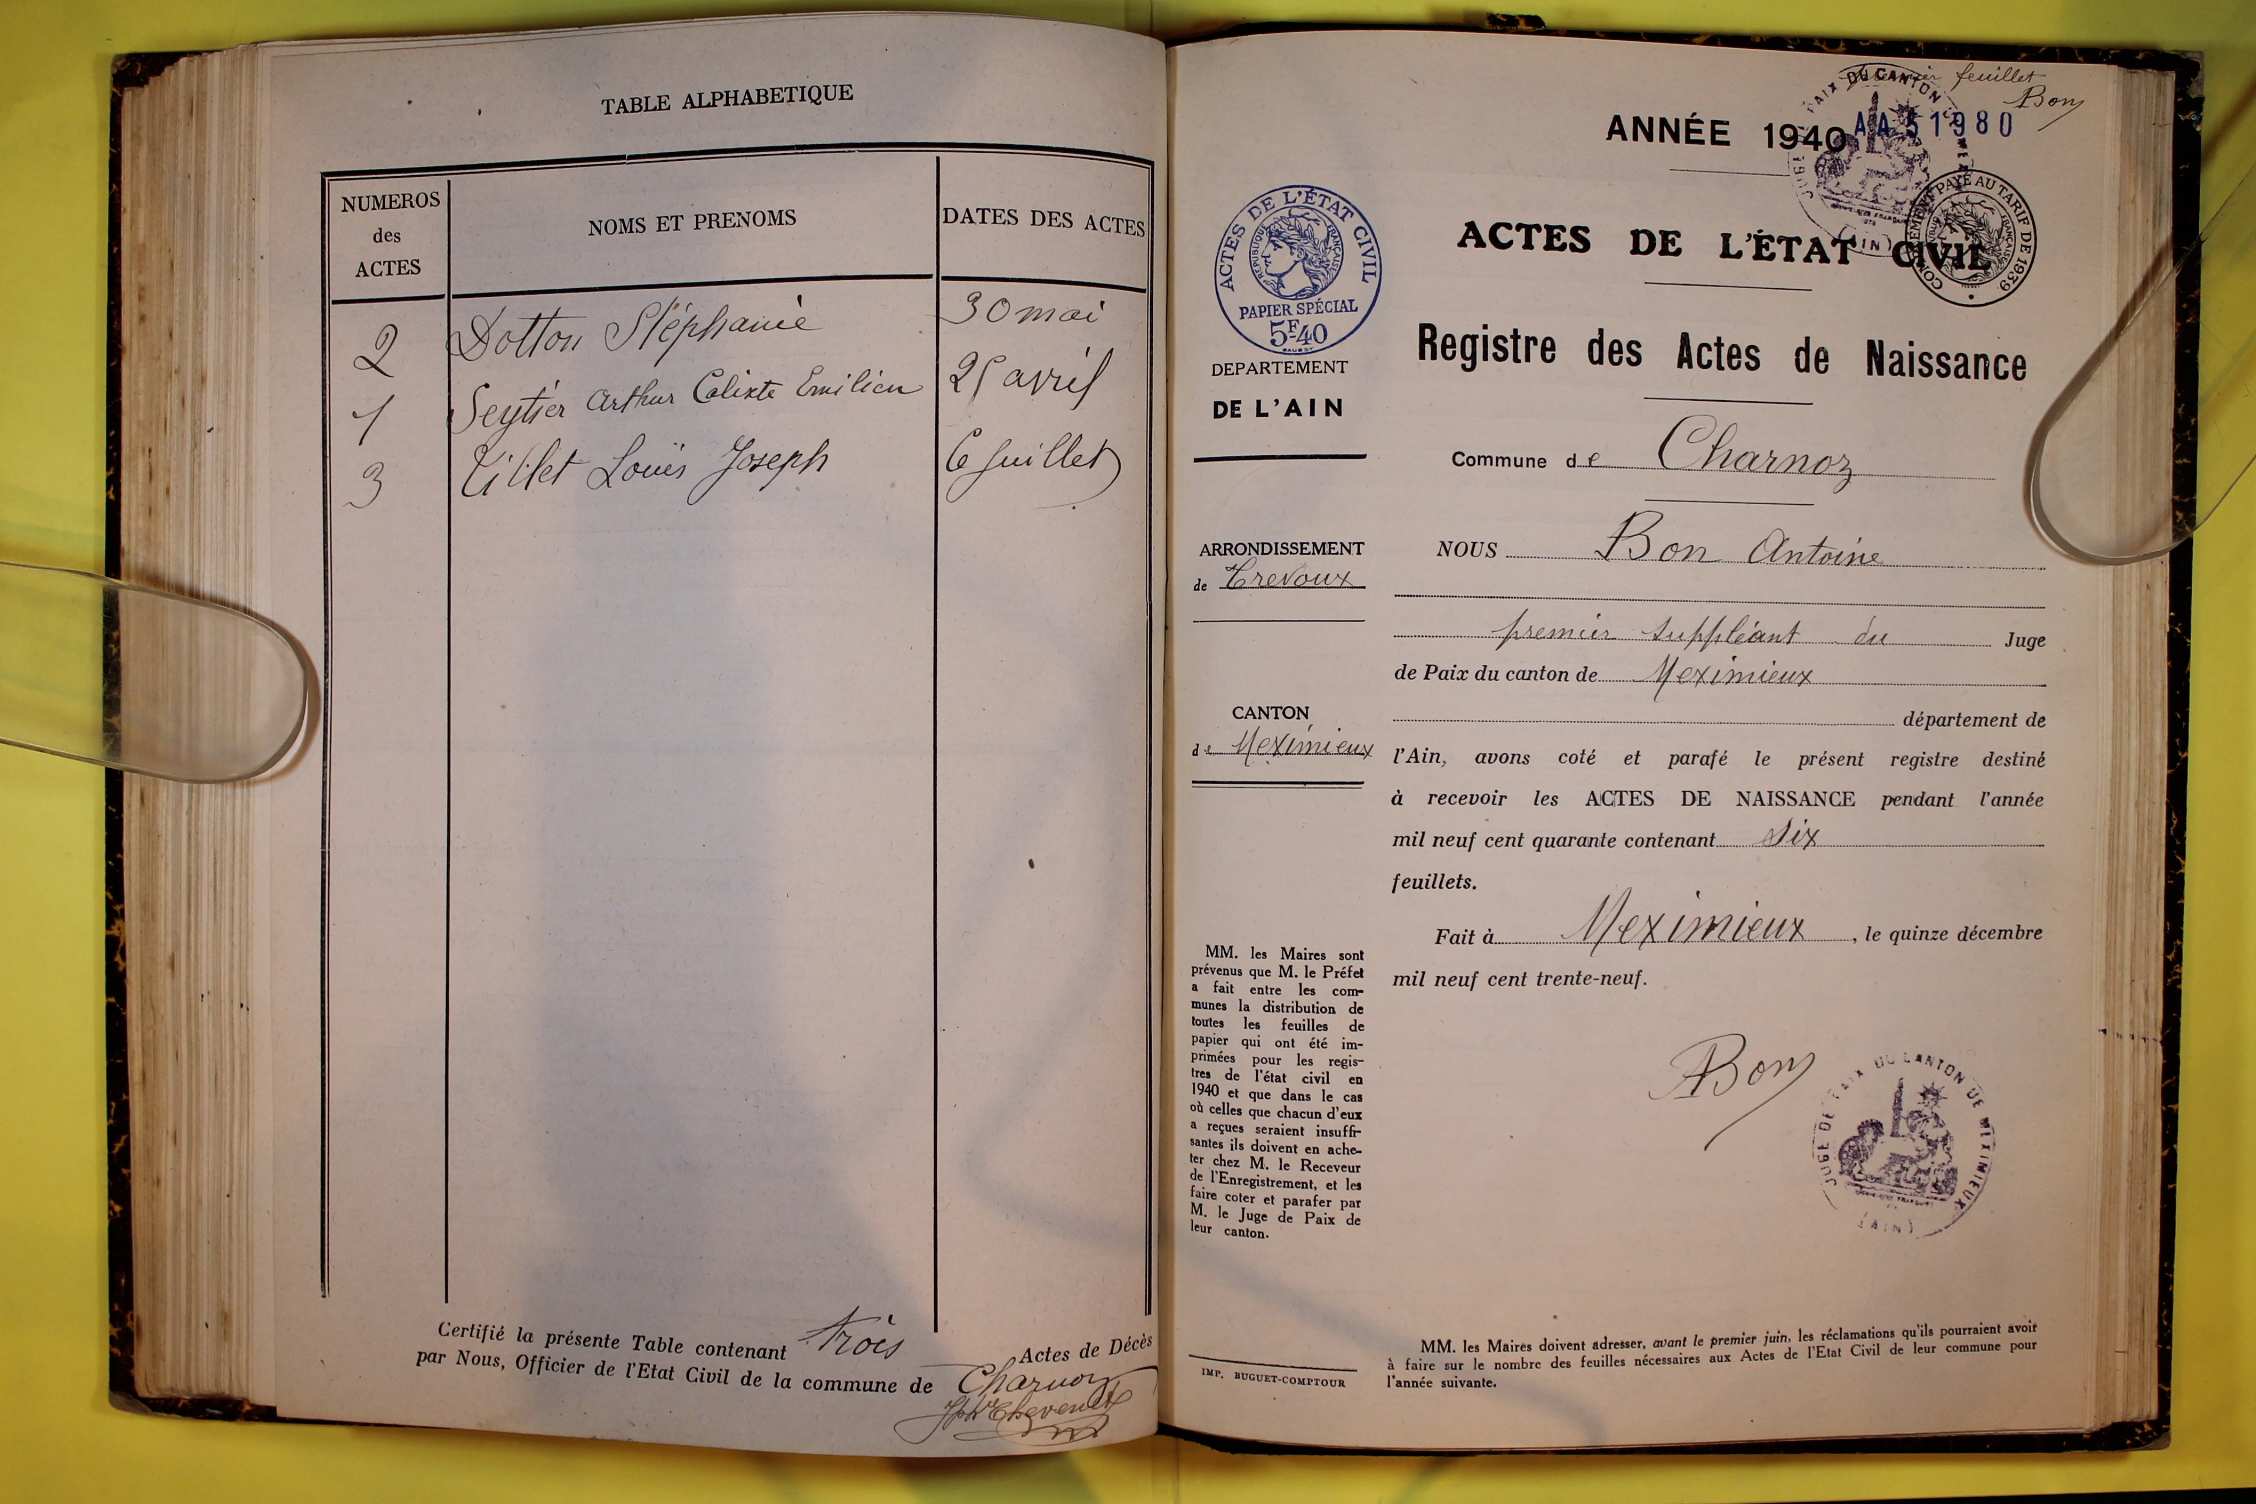 TABLE ALPHABETIQUE
NUMEROS
des
ACTES
NOMS ET PRENOMS
DATES DES ACTES
2 Dotton Stéphanie 30 mai
1 Seytier Arthur Calixte Emilien 25 avril
3 Louis Joseph 6 Juillet
Certifié la présente Table contenant trois Actes de Décès
par Nous, Officier de l'Etat Civil de la commune de Charnoz
premier feuillet
Bon
ANNÉE 1940
AA 51980
JUGE DE PAIX DU CANTON DE MEXIMIEUX
(AIN)
COMPLÉMENT PAYÉ AU TARIF DE 1939
ACTES DE L'ÉTAT CIVIL
RÉPUBLIQUE FRANÇAISE
PAPIER SPÉCIAL
5F.40
DEPARTEMENT
DE L'AIN
ARRONDISSEMENT
de Trevoux
CANTON
de Meximieux
MM. les Maires sont
prévenus que M. le Préfet
a fait entre les com-
munes la distribution de
toutes les feuilles de
papier qui ont été im-
primées pour les regis-
tres de l'état civil en
1940 et que dans le cas
où celles que chacun d'eux
a reçues seraient insuffi-
santes ils doivent en ache-
ter chez M. le Receveur
de l'Enregistrement, et les
faire coter et parafer par
M. le Juge de Paix de
leur canton.
IMP. BUGUET-COMPTOUR
ACTES DE L'ÉTAT CIVIL
Registre des Actes de Naissance
Commune de Charnoz
NOUS Bon Antoine
premier suppléant du Juge
de Paix du canton de Meximieux
département de
l'Ain, avons coté et parafé le présent registre destiné
à recevoir les ACTES DE NAISSANCE pendant l'année
mil neuf cent quarante contenant six
feuillets.
Fait à Meximieux, le quinze décembre
mil neuf cent trente-neuf.
Bon
JUGE DE PAIX DU CANTON DE MEXIMIEUX
(AIN)
MM. les Maires doivent adresser, avant le premier juin, les réclamations qu'ils pourraient avoir
à faire sur le nombre des feuilles nécessaires aux Actes de l'Etat Civil de leur commune pour
l'année suivante.